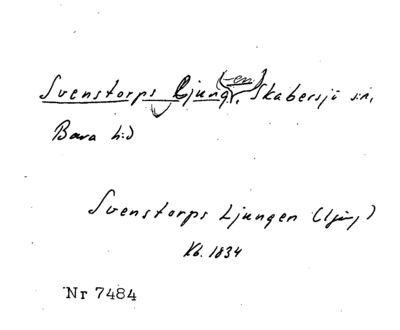 Svenstorps Ljung(-en), Skabersjö sn,
Bara hd
Svenstorps Ljungen (ljung)
Kb. 1834
Nr 7484